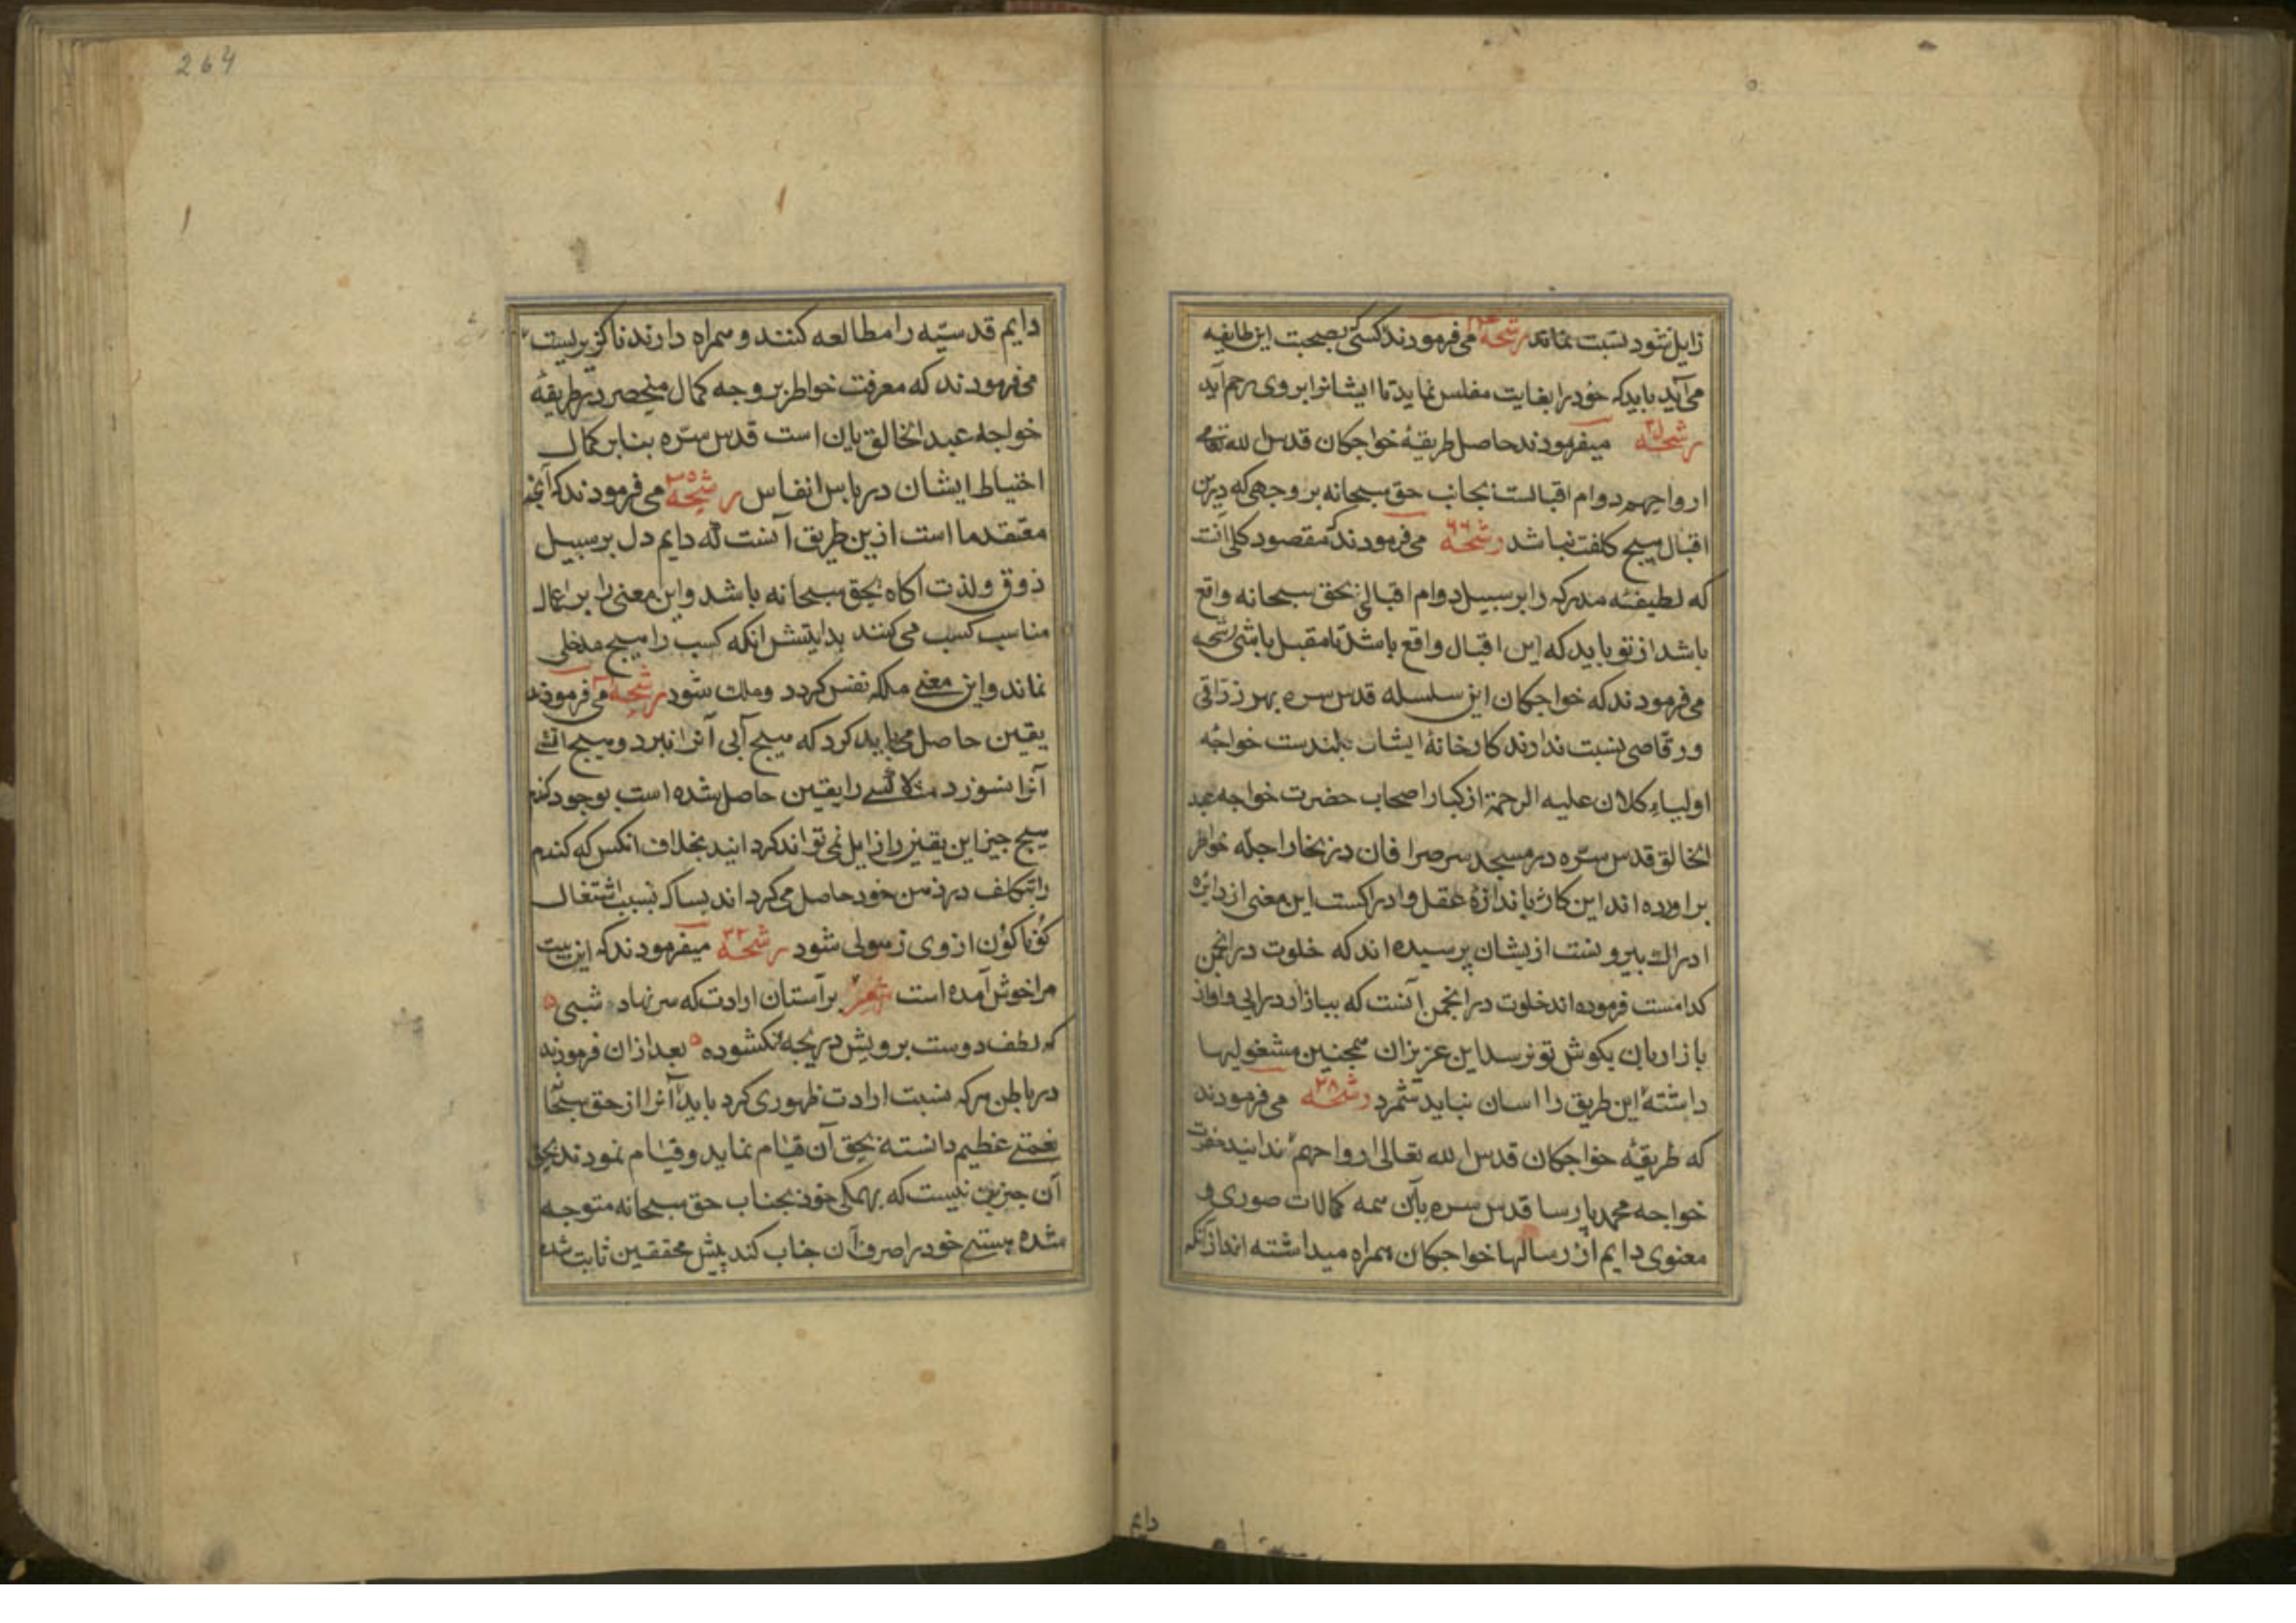 زایل شود نسبت نماند رشحه می فرمودند کسی بصحبت این طایفه
می آید باید که خود را بغایت مفلس نماید تا ایشانرا بروی رحم آید
رشحه میفرمودند حاصل طریقهٔ خواجکان قدس الله تعالی
ارواحهم دوام اقبالست بجانب حق سبحانه بر وجهی که درین
اقبال هیچ کلفت نباشد رشحه می فرمودند مقصود کلی آنست
که لطیفهٔ مدرکه را بر سبیل دوام اقبالی بحق سبحانه واقع
باشد از تو باید که این اقبال واقع باشد تا مقبل باشی رشحه
می فرمودند که خواجکان این سلسله قدس سره بهر زراقی
و رقاصی نسبت ندارند کارخانهٔ ایشان بلندست خواجه
اولیاء کلان علیه الرحمة از کبار اصحاب حضرت خواجه عبد
الخالق قدس سره در مسجد سر صرافان در بخارا چله خواطر
براورده اند این کار نه باندازهٔ عقل و ادراکست این معنی از دایره
ادراك بیرونست ازیشان پرسیده اند که خلوت در انجمن
کدامست فرموده اند خلوت در انجمن آنست که ببازار درایی و اواز
بازاریان بکوش تو نرسد این عزیزان همچنین مشغولیها
داشتهٔ این طریق را اسان نباید شمرد رشحه ۲۸ می فرمودند
که طریقهٔ خواجکان قدس الله تعالی ارواحهم ندانید حضرت
خواجه محمد پارسا قدس سره بآن همه کمالات صوری و
معنوی دایم از رسالها خواجکان همراه میداشته اند از آنکه
دایم
264
دایم قدسیّه را مطالعه کنند و همراه دارند ناکزیرست
می فرمودند که معرفت خواطر بر وجه کمال منحصر در طریقهٔ
خواجه عبد الخالقیان است قدس سره بنابر کمال
احتیاط ایشان در پاس انفاس رشحه می فرمودند که آنچه
معتقد ما است ازین طریق آنست که دایم دل بر سبیل
ذوق ولذت اکاه بحق سبحانه باشد و این معنی را بر اعمال
مناسب کسب می کنند بدایتش انکه کسب را هیچ مدخلی
نماند و این معنی ملکه نفس کردد و ملك شود رشحه می فرمودند
یقین حاصل می باید کرد که هیچ آبی آنرا نبرد و هیچ اتشی
آنرا نسوزد مثلا کسی را یقین حاصل شده است بوجود کندم
هیچ چیز این یقین را زایل نمی تواند کردانید بخلاف انکس که کندم
را بتکلف در ذهن خود حاصل می کرداند بساکه بسبب اشتغال
کوناکون ازوی زهولی شود رشحه ۳۲ میفرمودند که این بیت
مرا خوش آمده است شعر بر آستان ارادت که سر نهاد شبی
که لطف دوست برویش دریچه نکشوده بعد ازان فرمودند
در باطن هرکه نسبت ارادت ظهوری کرد باید آنرا از حق سبحانه
نعمتی عظیم دانسته بحق آن قیام نماید و قیام نمودند بحق
آن جز این نیست که بهمکی خود بجناب حق سبحانه متوجه
شده هستی خود را صرف آن جناب کند پیش محققین ثابت شده